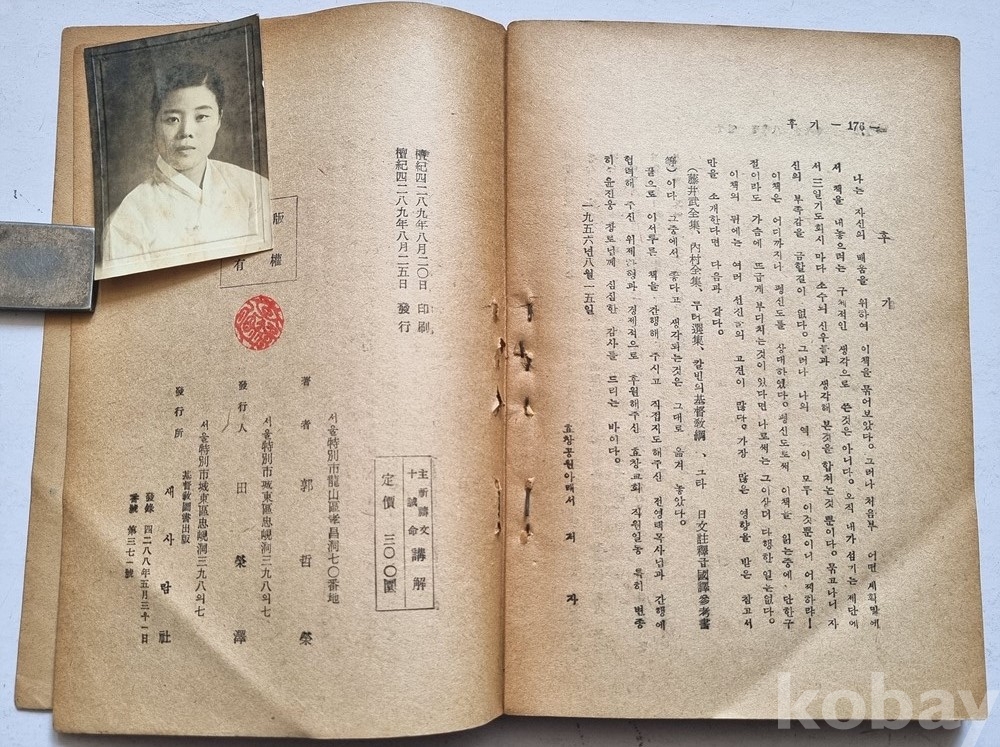 후 기 — 176 —
후 기
나는 자신의 배움을 위하여 이책을 묶어보았다. 그러나 처음부 어떤 계획밑에
서 책을 내놓으려는 구체적인 생각으로 쓴것은 아니다. 오직 내가 섬기는 제단에
서 三일기도회시 마다 소수의 신우들과 생각해 본것을 합처는것 뿐이다. 묶고나니 자
신의 부족감을 금할길이 없다. 그러나 나의 역 이 모두 이것뿐이니 어찌하랴!
이책은 어디까지나 평신도를 상대하였다. 평신도로써 이책을 읽는중에 단한구
절이라도 가슴에 뜨겁게 부디치는것이 있다면 나로써는 그이상더 다행한 일는없다.
이책의 뒤에는 여러 선진들의 고전이 많다. 가장 많은 영향을 받은 참고서
만을 소개한다면 다음과 같다.
(藤井武全集、內村全集、루터選集、칼빈의基督敎綱、그타 日文註釋及國譯參考書
等)이다. 그중에서 좋다고 생각되는것은 그대로 옮겨 놓았다.
끝으로 이서투른 책을 간행해 주시고 직접지도해주신 전영택목사님과 간행에
협력해 주신 위제하형과 경제적으로 후원해주신 효창교회 직원일동 특히 변종
히 윤진웅 장로님께 심심한 감사를 드리는 바이다.
一九五六年八月一五일
효창공원아래서 저 자
檀紀四二八九年八月二〇日 印刷
檀紀四二八九年八月二五日 發行
版權
有
主祈禱文
十誡命 講解
定價 三〇〇圜
서울特別市龍山區孝昌洞七〇番地
著者 郭哲榮
서울特別市城東區忠峴洞三九八의七
發行人 田榮澤
서울特別市城東區忠峴洞三九八의七
基督敎圖書出版
發行所 새사람社
發錄 四二八八年五月三十一日
番號 第三七一號
kobay